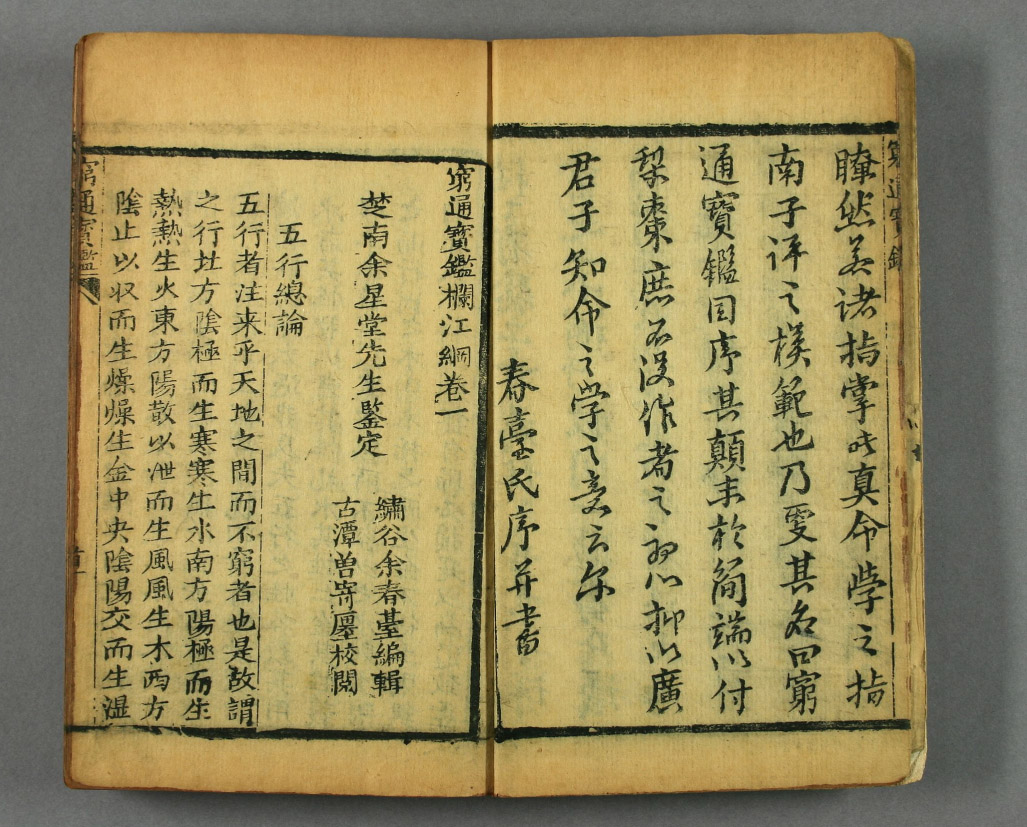 窮通寶鑑
瞭然若諸指掌此真命學之指
南子評之模範也乃更其名曰窮
通寶鑑因序其顛末於簡端以付
梨棗庶不没作者之初心抑以廣
君子知命之學之意云尔
春臺氏序并書
窮通寶鑑欄江綱卷一
楚南余星堂先生鑒定
繡谷余春臺編輯
古潭曽寄廛校閲
五行總論
五行者注来乎天地之間而不窮者也是故謂
之行北方陰極而生寒寒生水南方陽極而生
熱熱生火東方陽散以泄而生風風生木西方
陰止以収而生燥燥生金中央陰陽交而生濕
窮通寶鑑